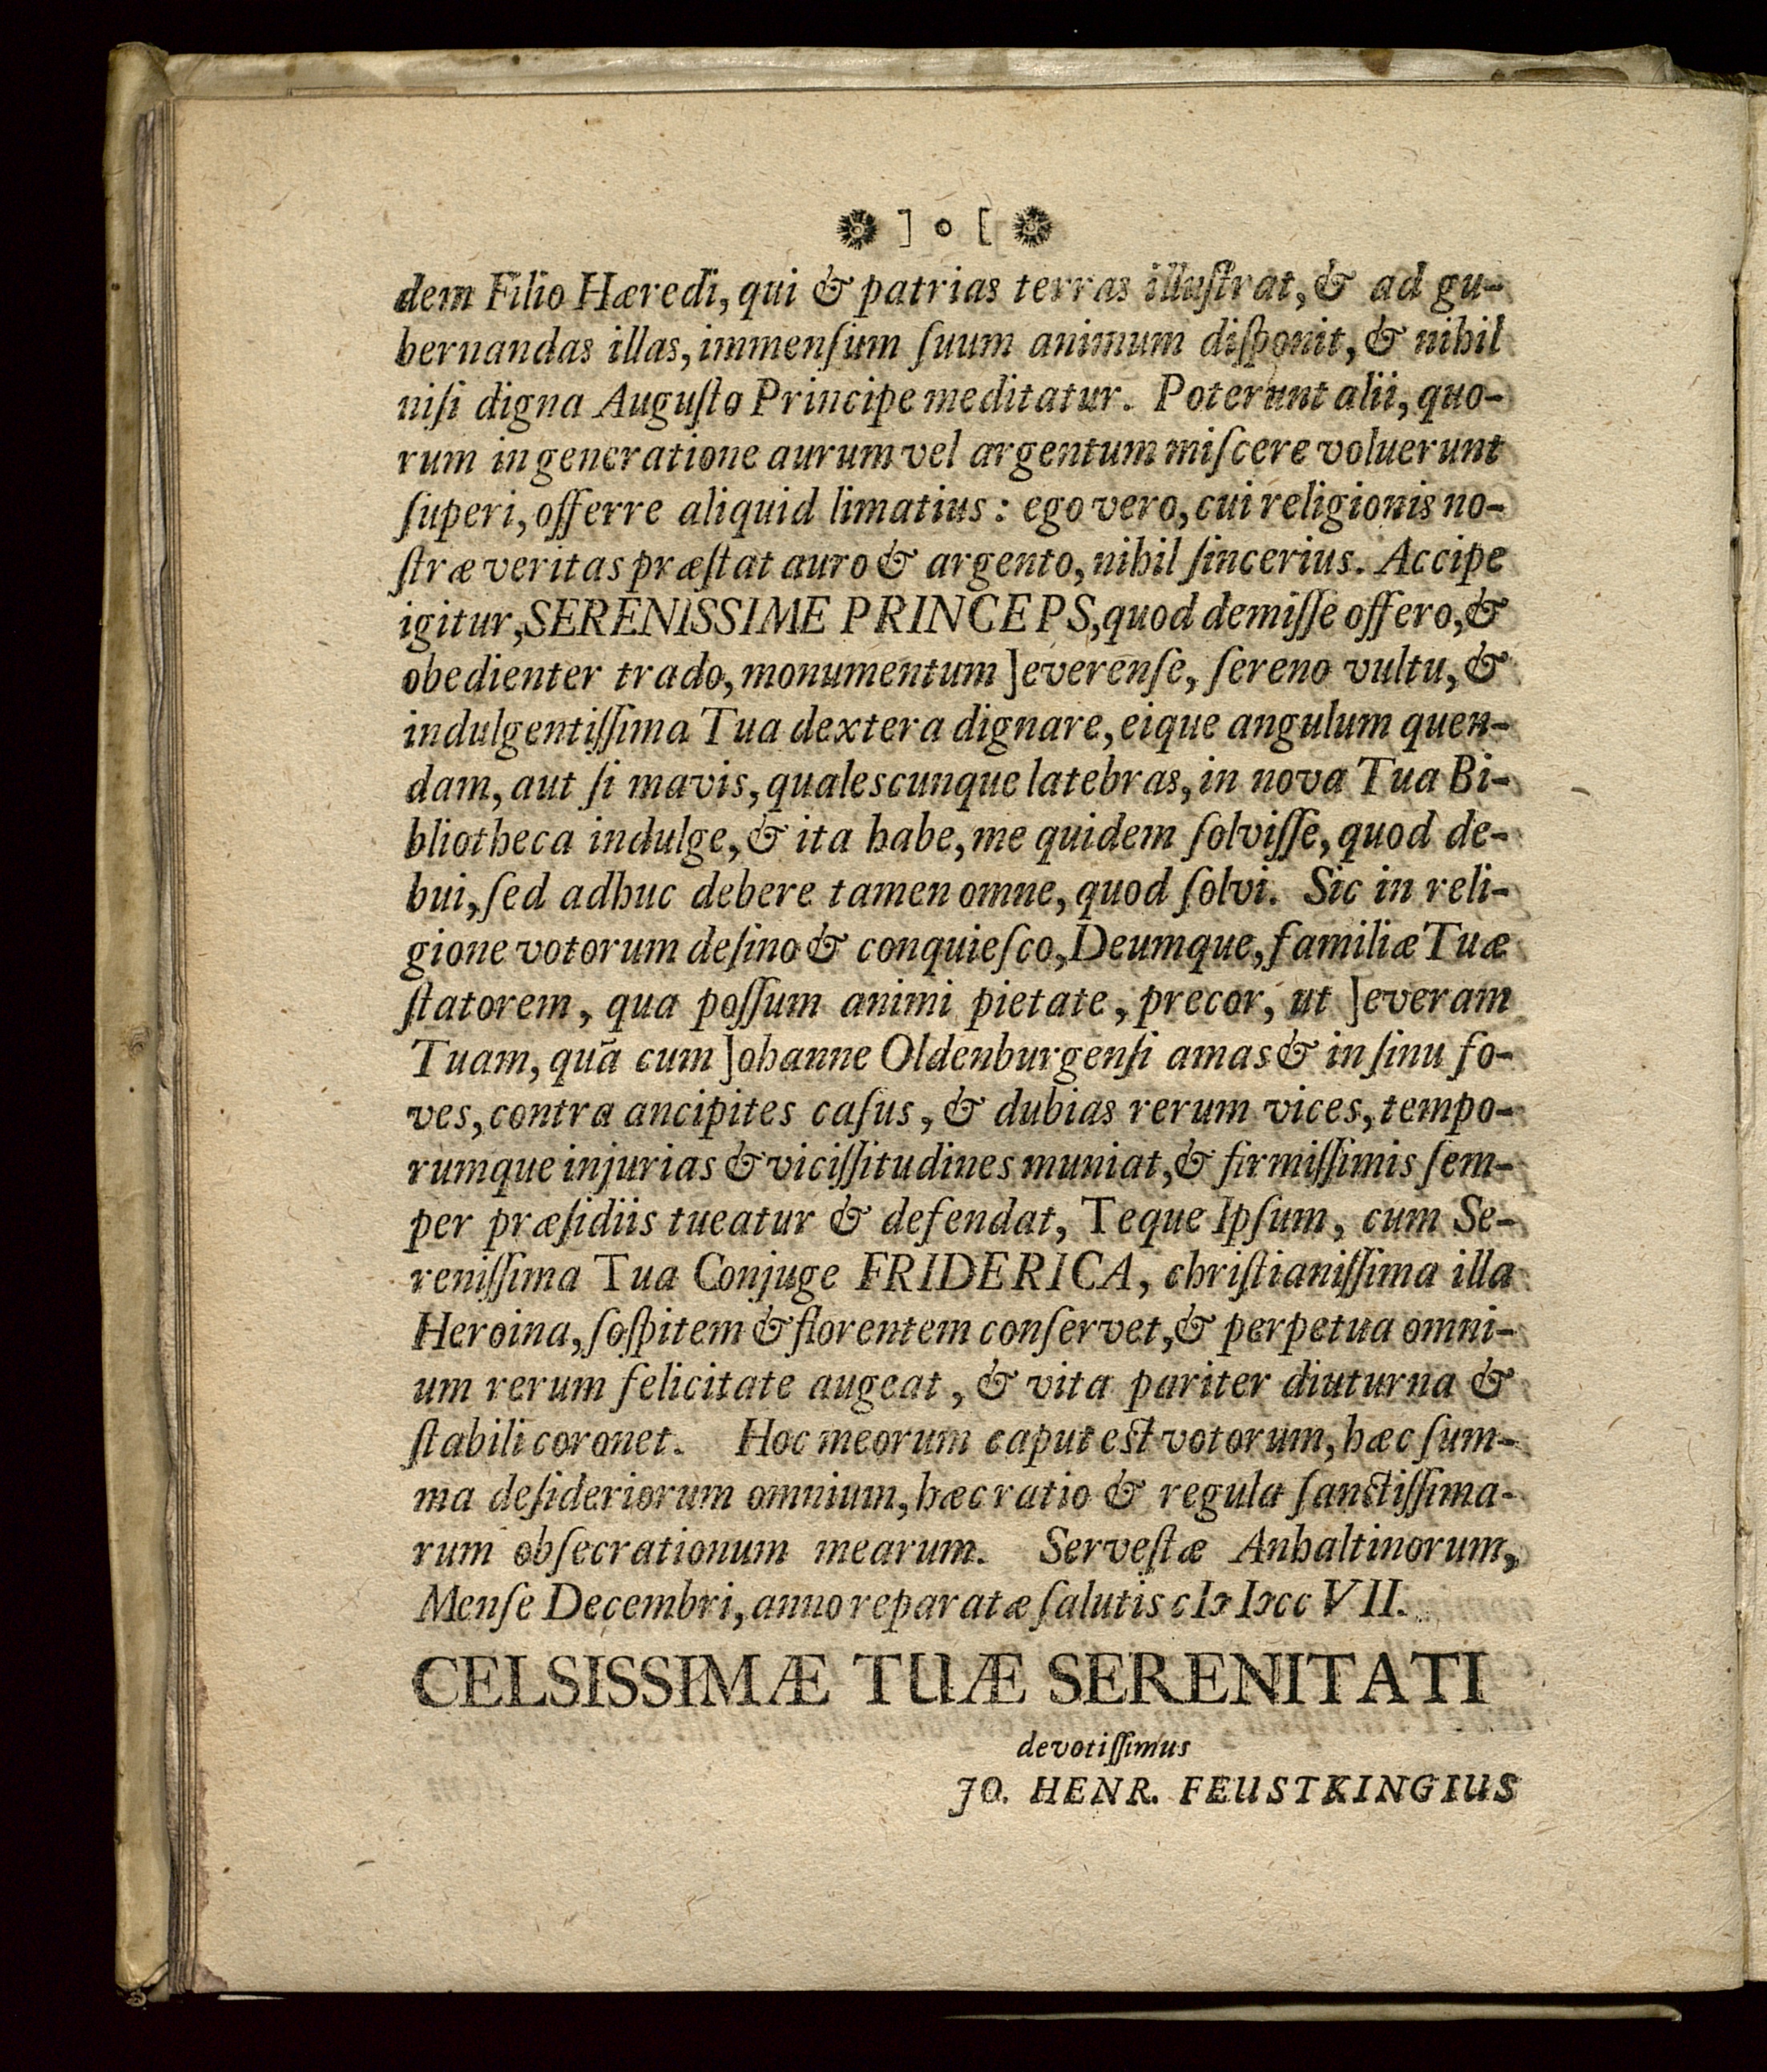 ❋ ] o [ ❋
dem Filio Hæredi, qui & patrias terras illuſtrat, & ad gu-
bernandas illas, immenſum ſuum animum diſponit, & nihil
niſi digna Auguſto Principe meditatur. Poterunt alii, quo-
rum in generatione aurum vel argentum miſcere voluerunt
ſuperi, offerre aliquid limatius: ego vero, cui religionis no-
ſtræ veritas præſtat auro & argento, nihil ſincerius. Accipe
igitur, SERENISSIME PRINCEPS, quod demiſſe offero, &
obedienter trado, monumentum Jeverenſe, ſereno vultu, &
indulgentiſſima Tua dextera dignare, eique angulum quen-
dam, aut ſi mavis, qualescunque latebras, in nova Tua Bi-
bliotheca indulge, & ita habe, me quidem ſolviſſe, quod de-
bui, ſed adhuc debere tamen omne, quod ſolvi. Sic in reli-
gione votorum deſino & conquieſco, Deumque, familiæ Tuæ
ſtatorem, qua poſſum animi pietate, precor, ut Jeveram
Tuam, quã cum Johanne Oldenburgenſi amas & in ſinu fo-
ves, contra ancipites caſus, & dubias rerum vices, tempo-
rumque injurias & viciſſitudines muniat, & firmiſſimis ſem-
per præſidiis tueatur & defendat, Teque Ipſum, cum Se-
reniſſima Tua Conjuge FRIDERICA, chriſtianiſſima illa
Heroina, ſoſpitem & florentem conſervet, & perpetua omni-
um rerum felicitate augeat, & vita pariter diuturna &
ſtabili coronet. Hoc meorum caput eſt votorum, hæc ſum-
ma deſideriorum omnium, hæc ratio & regula ſanctiſſima-
rum obſecrationum mearum. Serveſtæ Anhaltinorum,
Menſe Decembri, anno reparatæ ſalutis cIↄ Iↄcc VII.
CELSISSIMÆ TUÆ SERENITATI
devotiſſimus
JO. HENR. FEUSTKINGIUS